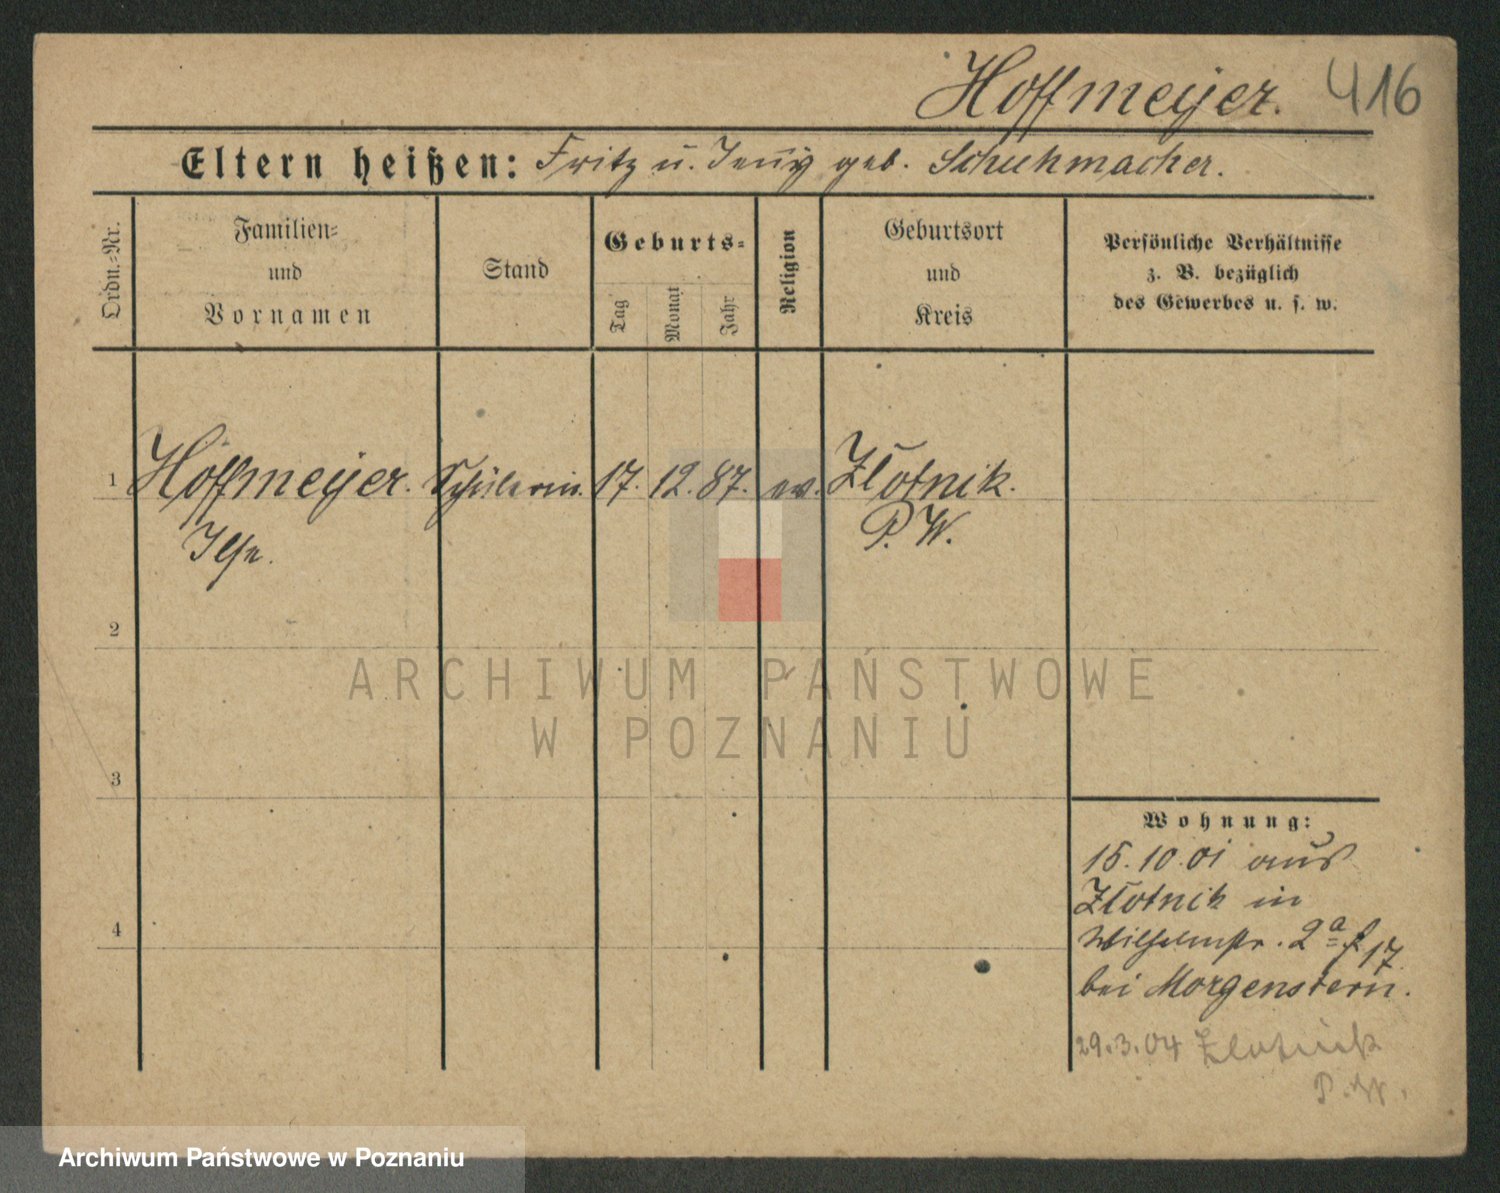 Hoffmeyer. 416
Eltern heißen: Fritz u. Jenny geb. Schuhmacher.
Ordn.=Nr.
Familien=
und
Vornamen
Stand
Geburts=
Tag
Monat
Jahr
Religion
Geburtsort
und
Kreis
Persönliche Verhältnisse
z. B. bezüglich
des Gewerbes u. s. w.
1 Hoffmeyer. Schülerin. 17. 12. 87. ev. Zlotnik.
Ilse. P. W.
2
3
4
Wohnung:
15.10.01 aus
Zlotnik in
Wilhelmstr. 2a 17
bei Morgenstern.
29.3.04 Zlotnik
P. W.
ARCHIWUM PAŃSTWOWE
W POZNANIU
Archiwum Państwowe w Poznaniu